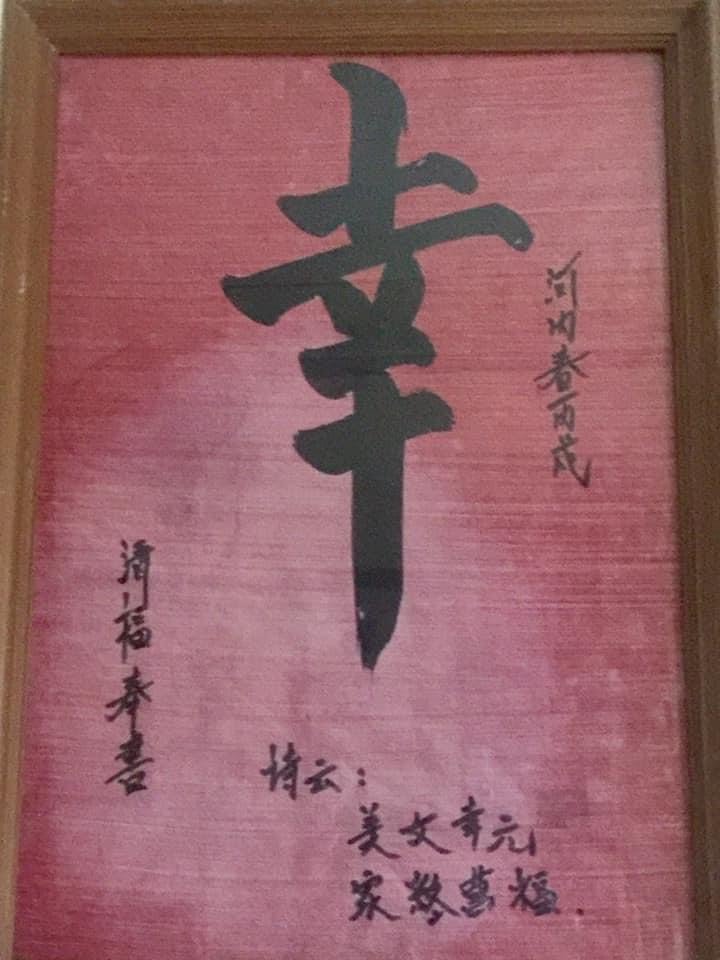 幸
河内春丙戌
清福奉書
詩云：
美文幸元
家